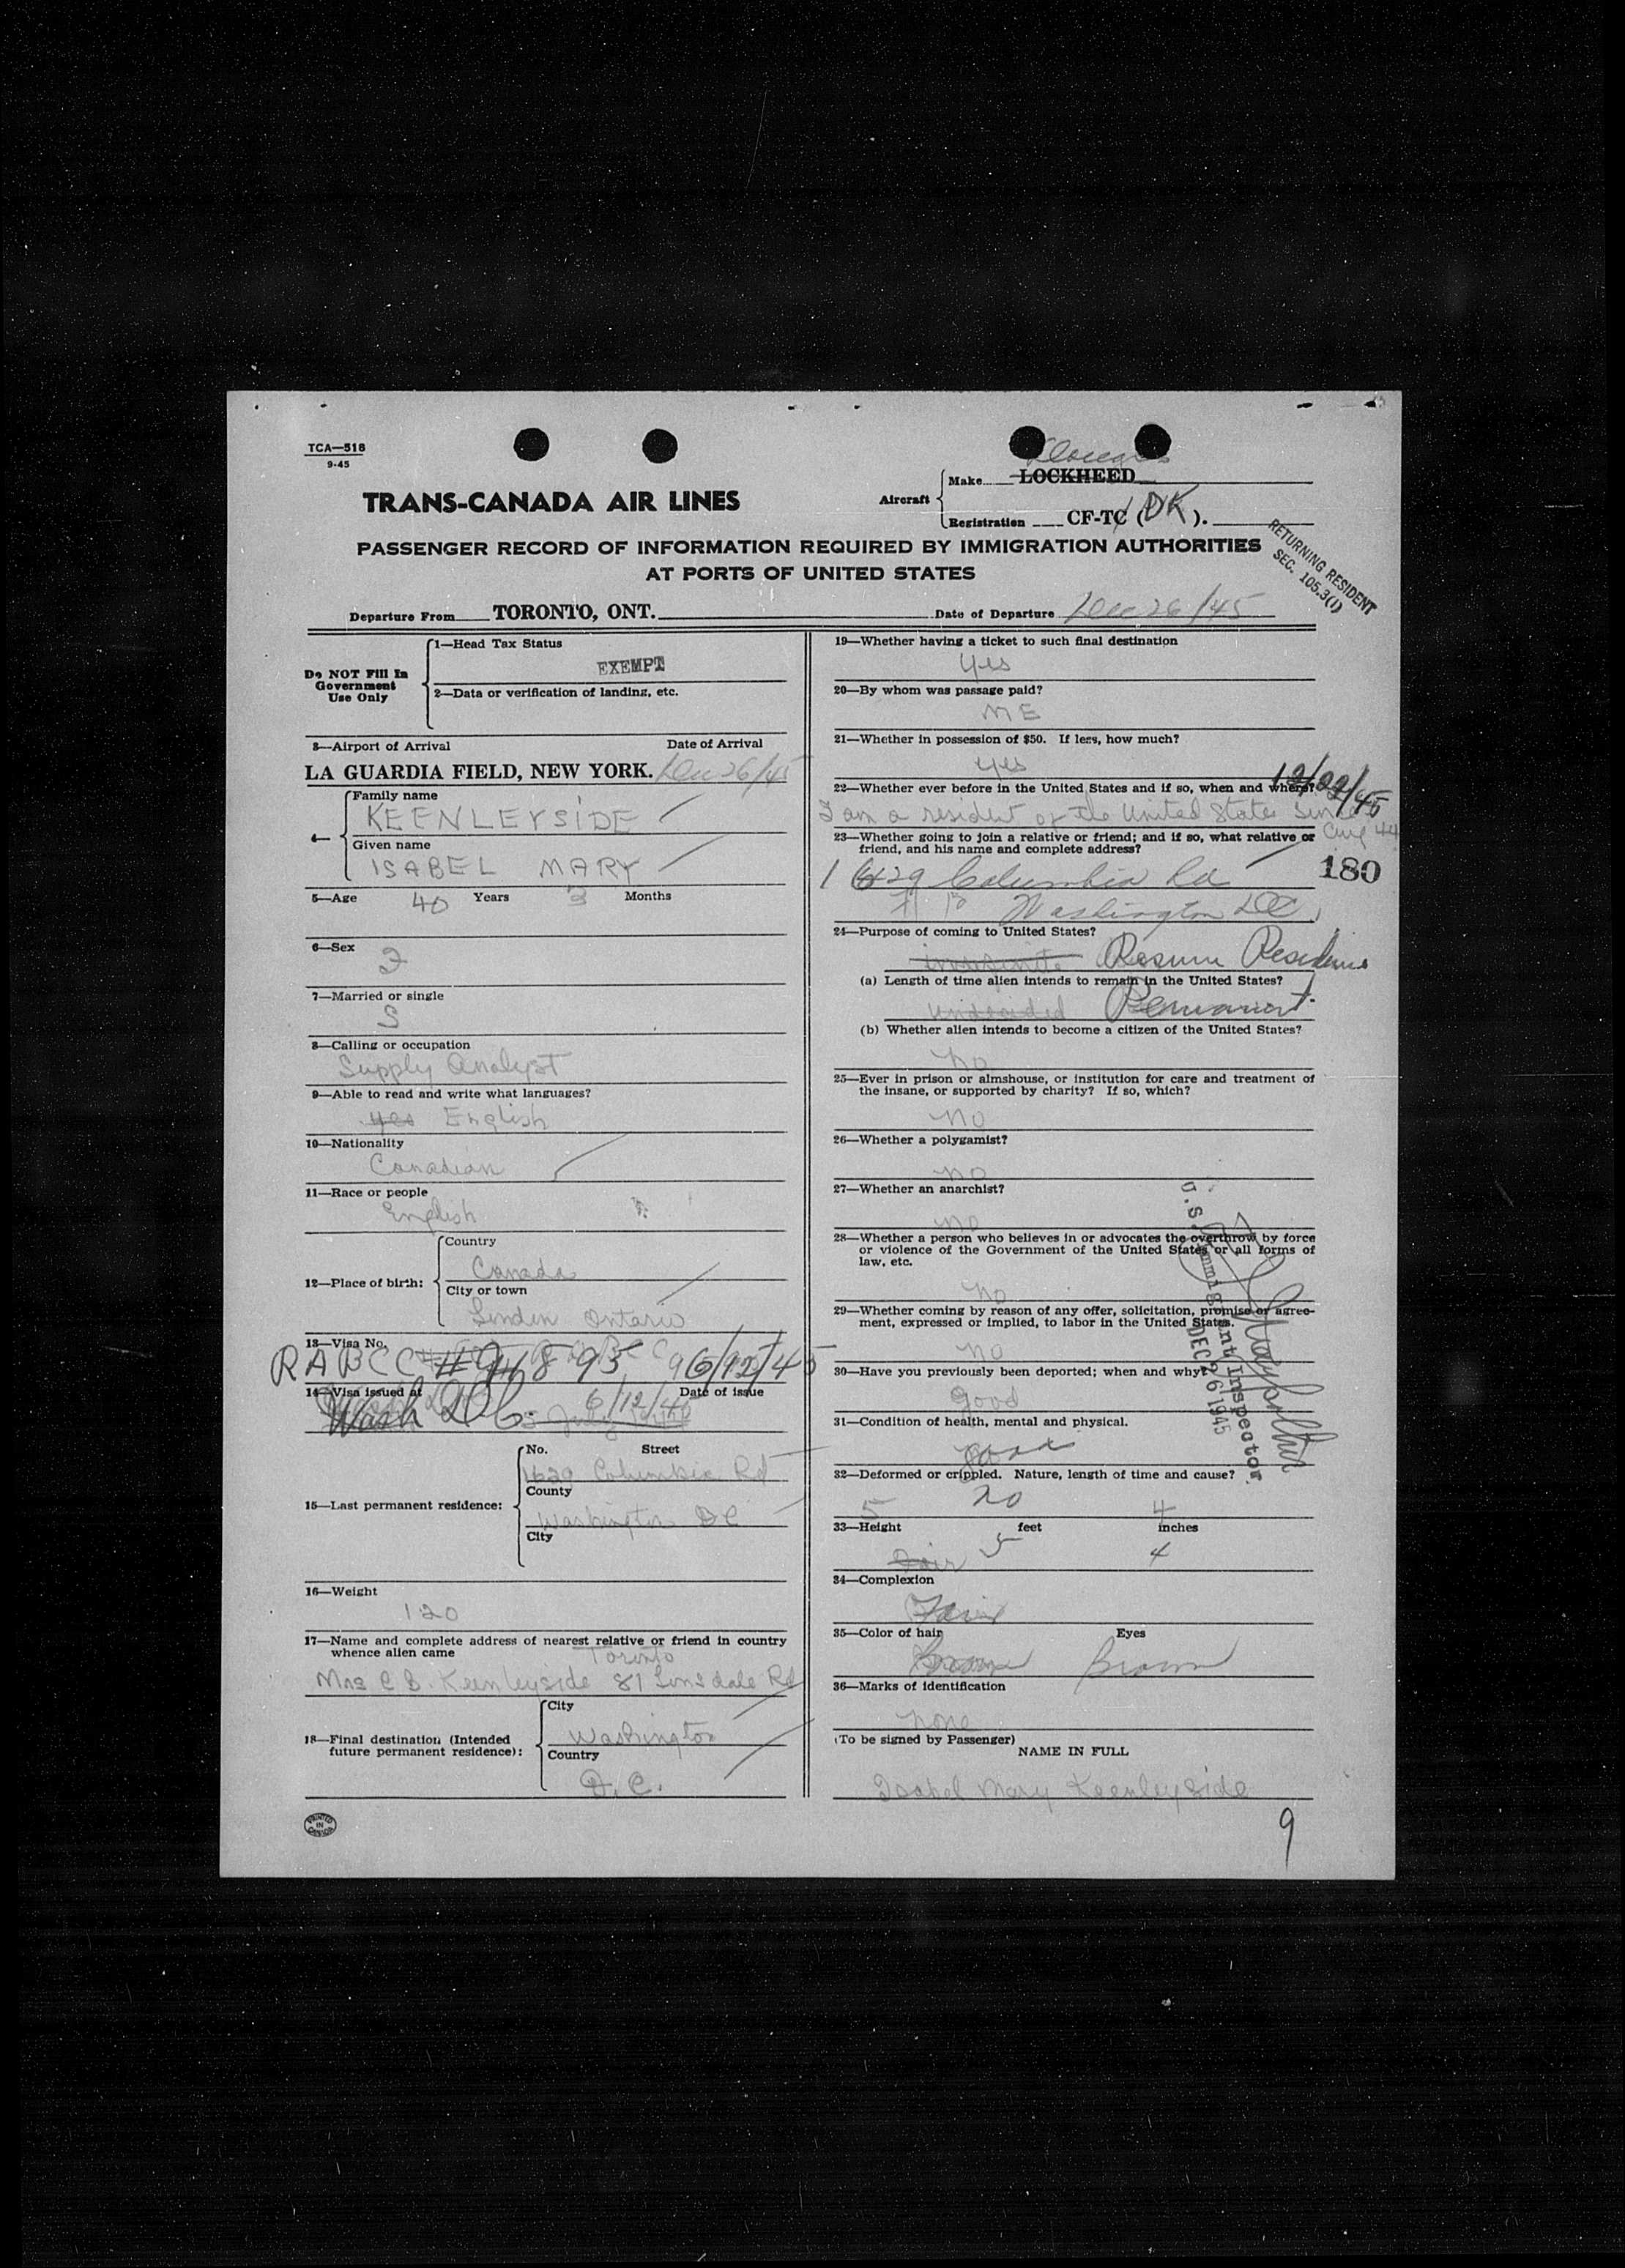 TCA—518
9-45
TRANS-CANADA AIR LINES
Aircraft
Make LOCKHEED
Registration CF-TC (DK).
PASSENGER RECORD OF INFORMATION REQUIRED BY IMMIGRATION AUTHORITIES
AT PORTS OF UNITED STATES
RETURNING RESIDENT
SEC. 105.3(1)
Departure From TORONTO, ONT. Date of Departure Dec 26/45
Do NOT Fill In
Government
Use Only
1—Head Tax Status
EXEMPT
2—Data or verification of landing, etc.
3—Airport of Arrival Date of Arrival
LA GUARDIA FIELD, NEW YORK. Dec 26/45
4—
Family name
KEENLEYSIDE
Given name
ISABEL MARY
5—Age 40 Years 3 Months
6—Sex
F
7—Married or single
S
8—Calling or occupation
Supply Analyst
9—Able to read and write what languages?
yes English
10—Nationality
Canadian
11—Race or people
English
12—Place of birth:
Country
Canada
City or town
Linden Ontario
13—Visa No.
RABCC # 94895 6/12/45
14—Visa issued at Date of issue
Wash DC. 6/12/45
15—Last permanent residence:
No. Street
1629 Columbia Rd
County
Washington DC
City
16—Weight
120
17—Name and complete address of nearest relative or friend in country
whence alien came
Toronto
Mrs C B. Keenleyside 81 Lonsdale Rd
18—Final destination (Intended
future permanent residence):
City
Washington
Country
D.C.
PRINTED
IN
CANADA
19—Whether having a ticket to such final destination
yes
20—By whom was passage paid?
ME
21—Whether in possession of $50. If less, how much?
yes
22—Whether ever before in the United States and if so, when and where?
12/22/45
I am a resident of the United States since
Aug 44
23—Whether going to join a relative or friend; and if so, what relative or
friend, and his name and complete address?
180
1629 Columbia Rd
Washington DC
24—Purpose of coming to United States?
Resume Residence
(a) Length of time alien intends to remain in the United States?
undecided Permanent
(b) Whether alien intends to become a citizen of the United States?
no
25—Ever in prison or almshouse, or institution for care and treatment of
the insane, or supported by charity? If so, which?
no
26—Whether a polygamist?
no
27—Whether an anarchist?
no
28—Whether a person who believes in or advocates the overthrow by force
or violence of the Government of the United States or all forms of
law, etc.
no
29—Whether coming by reason of any offer, solicitation, promise or agree-
ment, expressed or implied, to labor in the United States.
no
30—Have you previously been deported; when and why?
good
31—Condition of health, mental and physical.
good
32—Deformed or crippled. Nature, length of time and cause?
5 no 4
33—Height feet inches
fair 5 4
34—Complexion
Fair
35—Color of hair Eyes
Brown Brown
36—Marks of identification
none
(To be signed by Passenger)
NAME IN FULL
Isabel Mary Keenleyside
U.S. Immigrant Inspector
DEC 26 1945
9